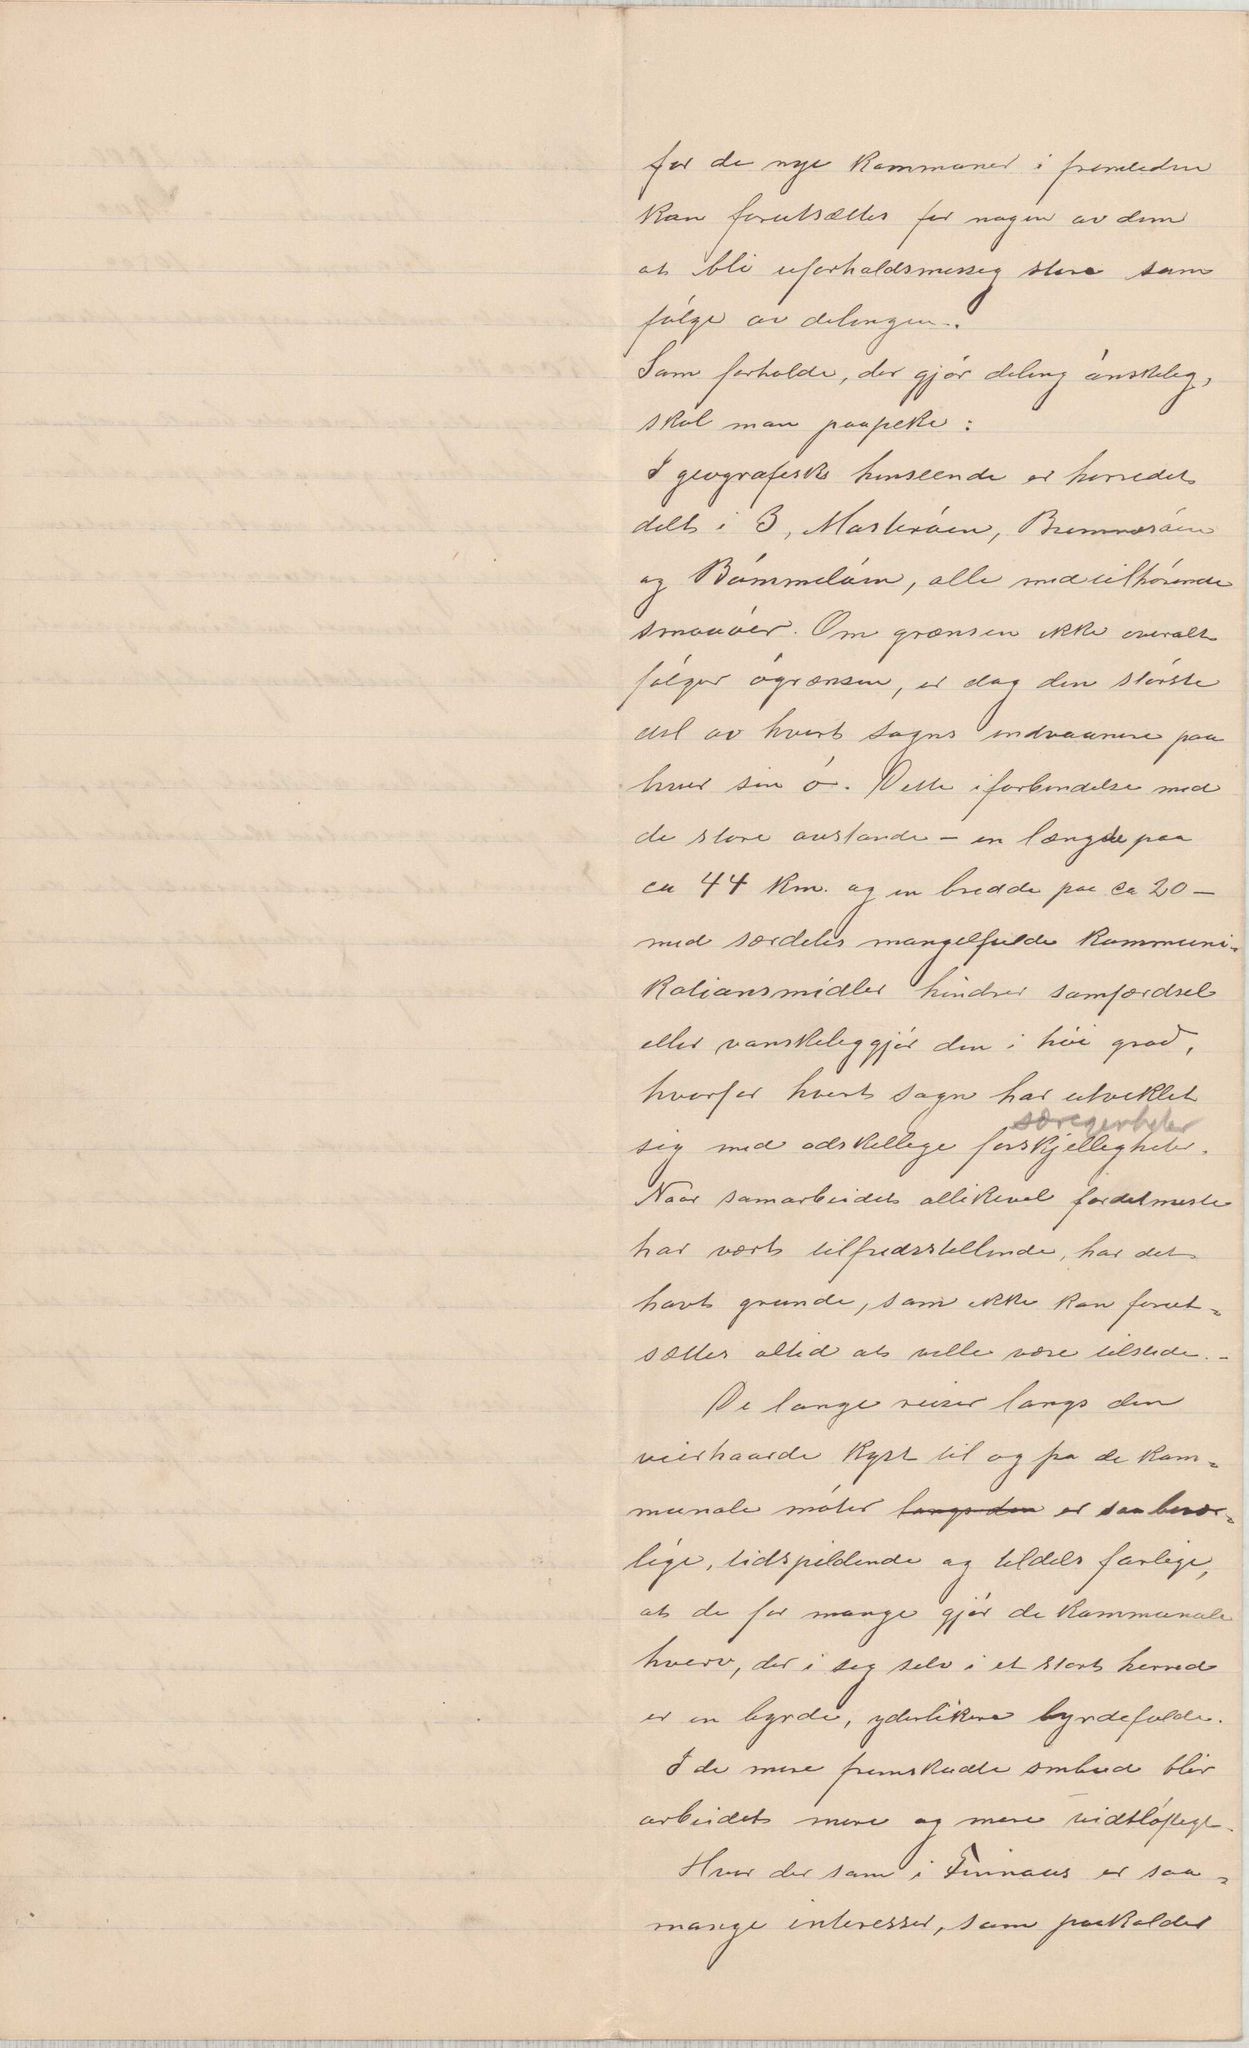 for de nye kommuner i fremtiden
kan forutsættes for nogen av dem
at bli uforholdsmessig store som
følge av delingen.
Som forholde, der gjør deling ønskelig,
skal man paapeke:
I geografisk henseende er herredet
delt i 3, Mosterøen, Bremnesøen
og Bømmeløen, alle med tilhørende
smaaøer. Om grænsen ikke overalt
følger øgrænsen, er dog den største
del av hvert sogns indvaanere paa
hver sin ø. Dette i forbindelse med
de store avstande – en længde paa
ca 44 km. og en bredde paa ca 20 –
med særdeles mangelfulde kommuni-
kationsmidler hindrer samfærdsel
eller vanskeliggjør den i høi grad,
hvorfor hvert sogn har utviklet
særegenheter
sig med adskellige forskjelligheter.
Naar samarbeidet allikevel fordetmeste
har vært tilfredsstillende, har det
havt grunde, som ikke kan forut-
sættes altid at ville være tilstede. –
De lange reiser langs den
veirhaarde kyst til og fra de kom-
munale møter langs den er saa besvær-
lige, tidspildende og tildels farlige,
at de for mange gjør de kommunale
hverv, der i sig selv i et stort herred
er en byrde, yderlikere byrdefulde.
I de mere fremskudte ombud blir
arbeidet mere og mere vidtløftigt.
Hvor der som i Finnaas er saa
mange interesser, som paakalder